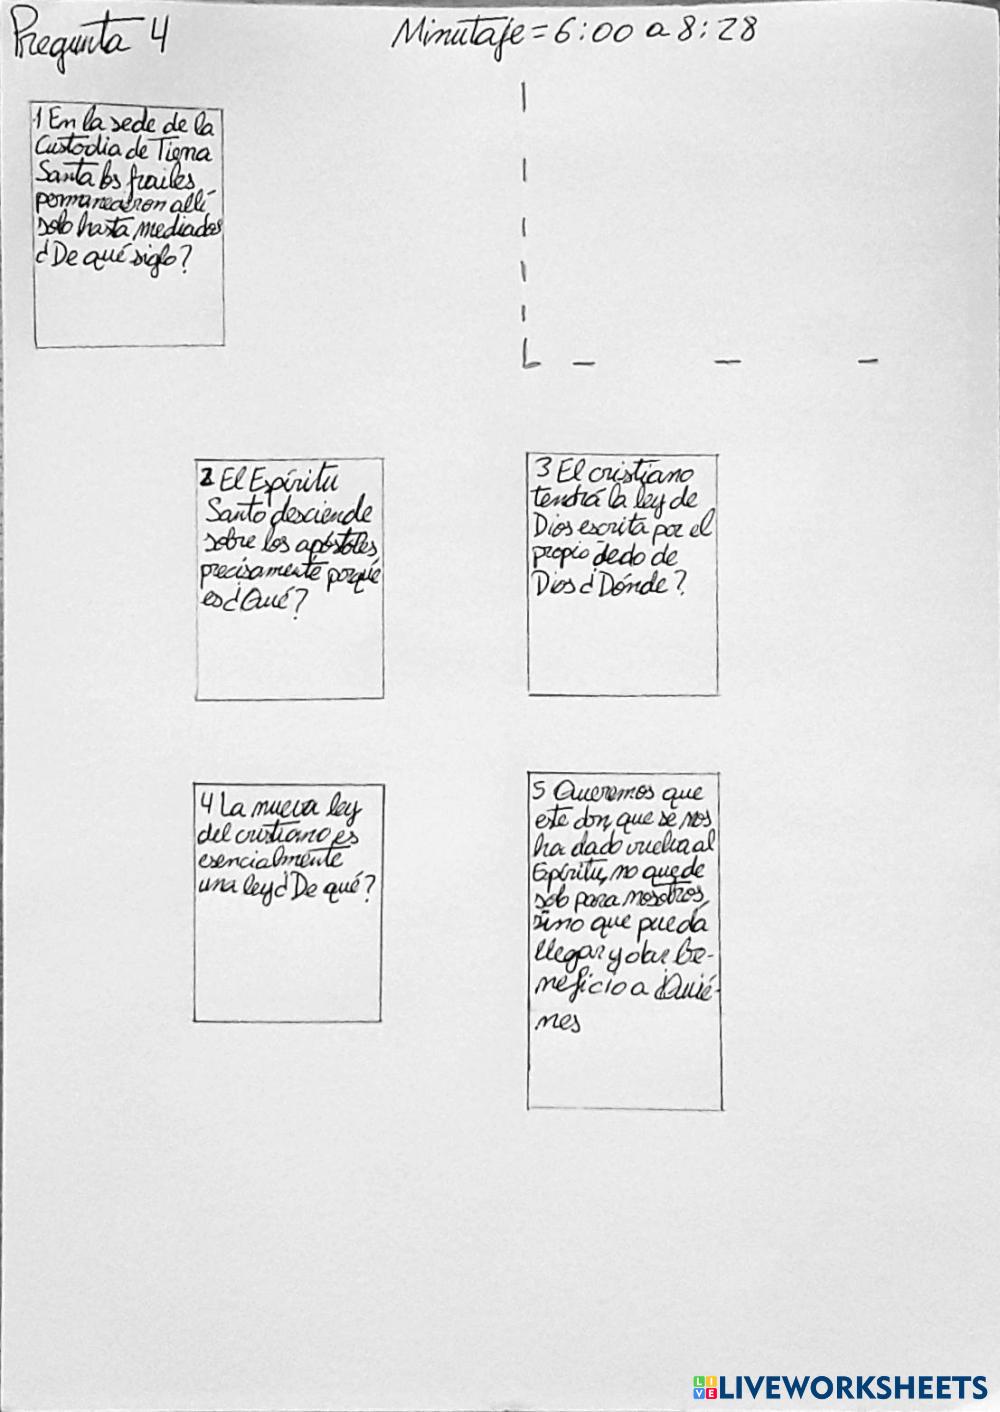 Pregunta 4
Minutaje = 6:00 a 8:28
1 En la sede de la
Custodia de Tierra
Santa los frailes
permanecieron allí
solo hasta mediados
¿De qué siglo?
2 El Espíritu
Santo desciende
sobre los apóstoles,
precisamente porque
es ¿Qué?
3 El cristiano
tendrá la ley de
Dios escrita por el
propio dedo de
Dios ¿Dónde?
4 La nueva ley
del cristiano es
esencialmente
una ley ¿De qué?
5 Queremos que
este don, que se nos
ha dado vuelva al
Espíritu, no quede
solo para nosotros,
sino que pueda
llegar y dar be-
neficio a ¿Quié-
nes
LIVEWORKSHEETS